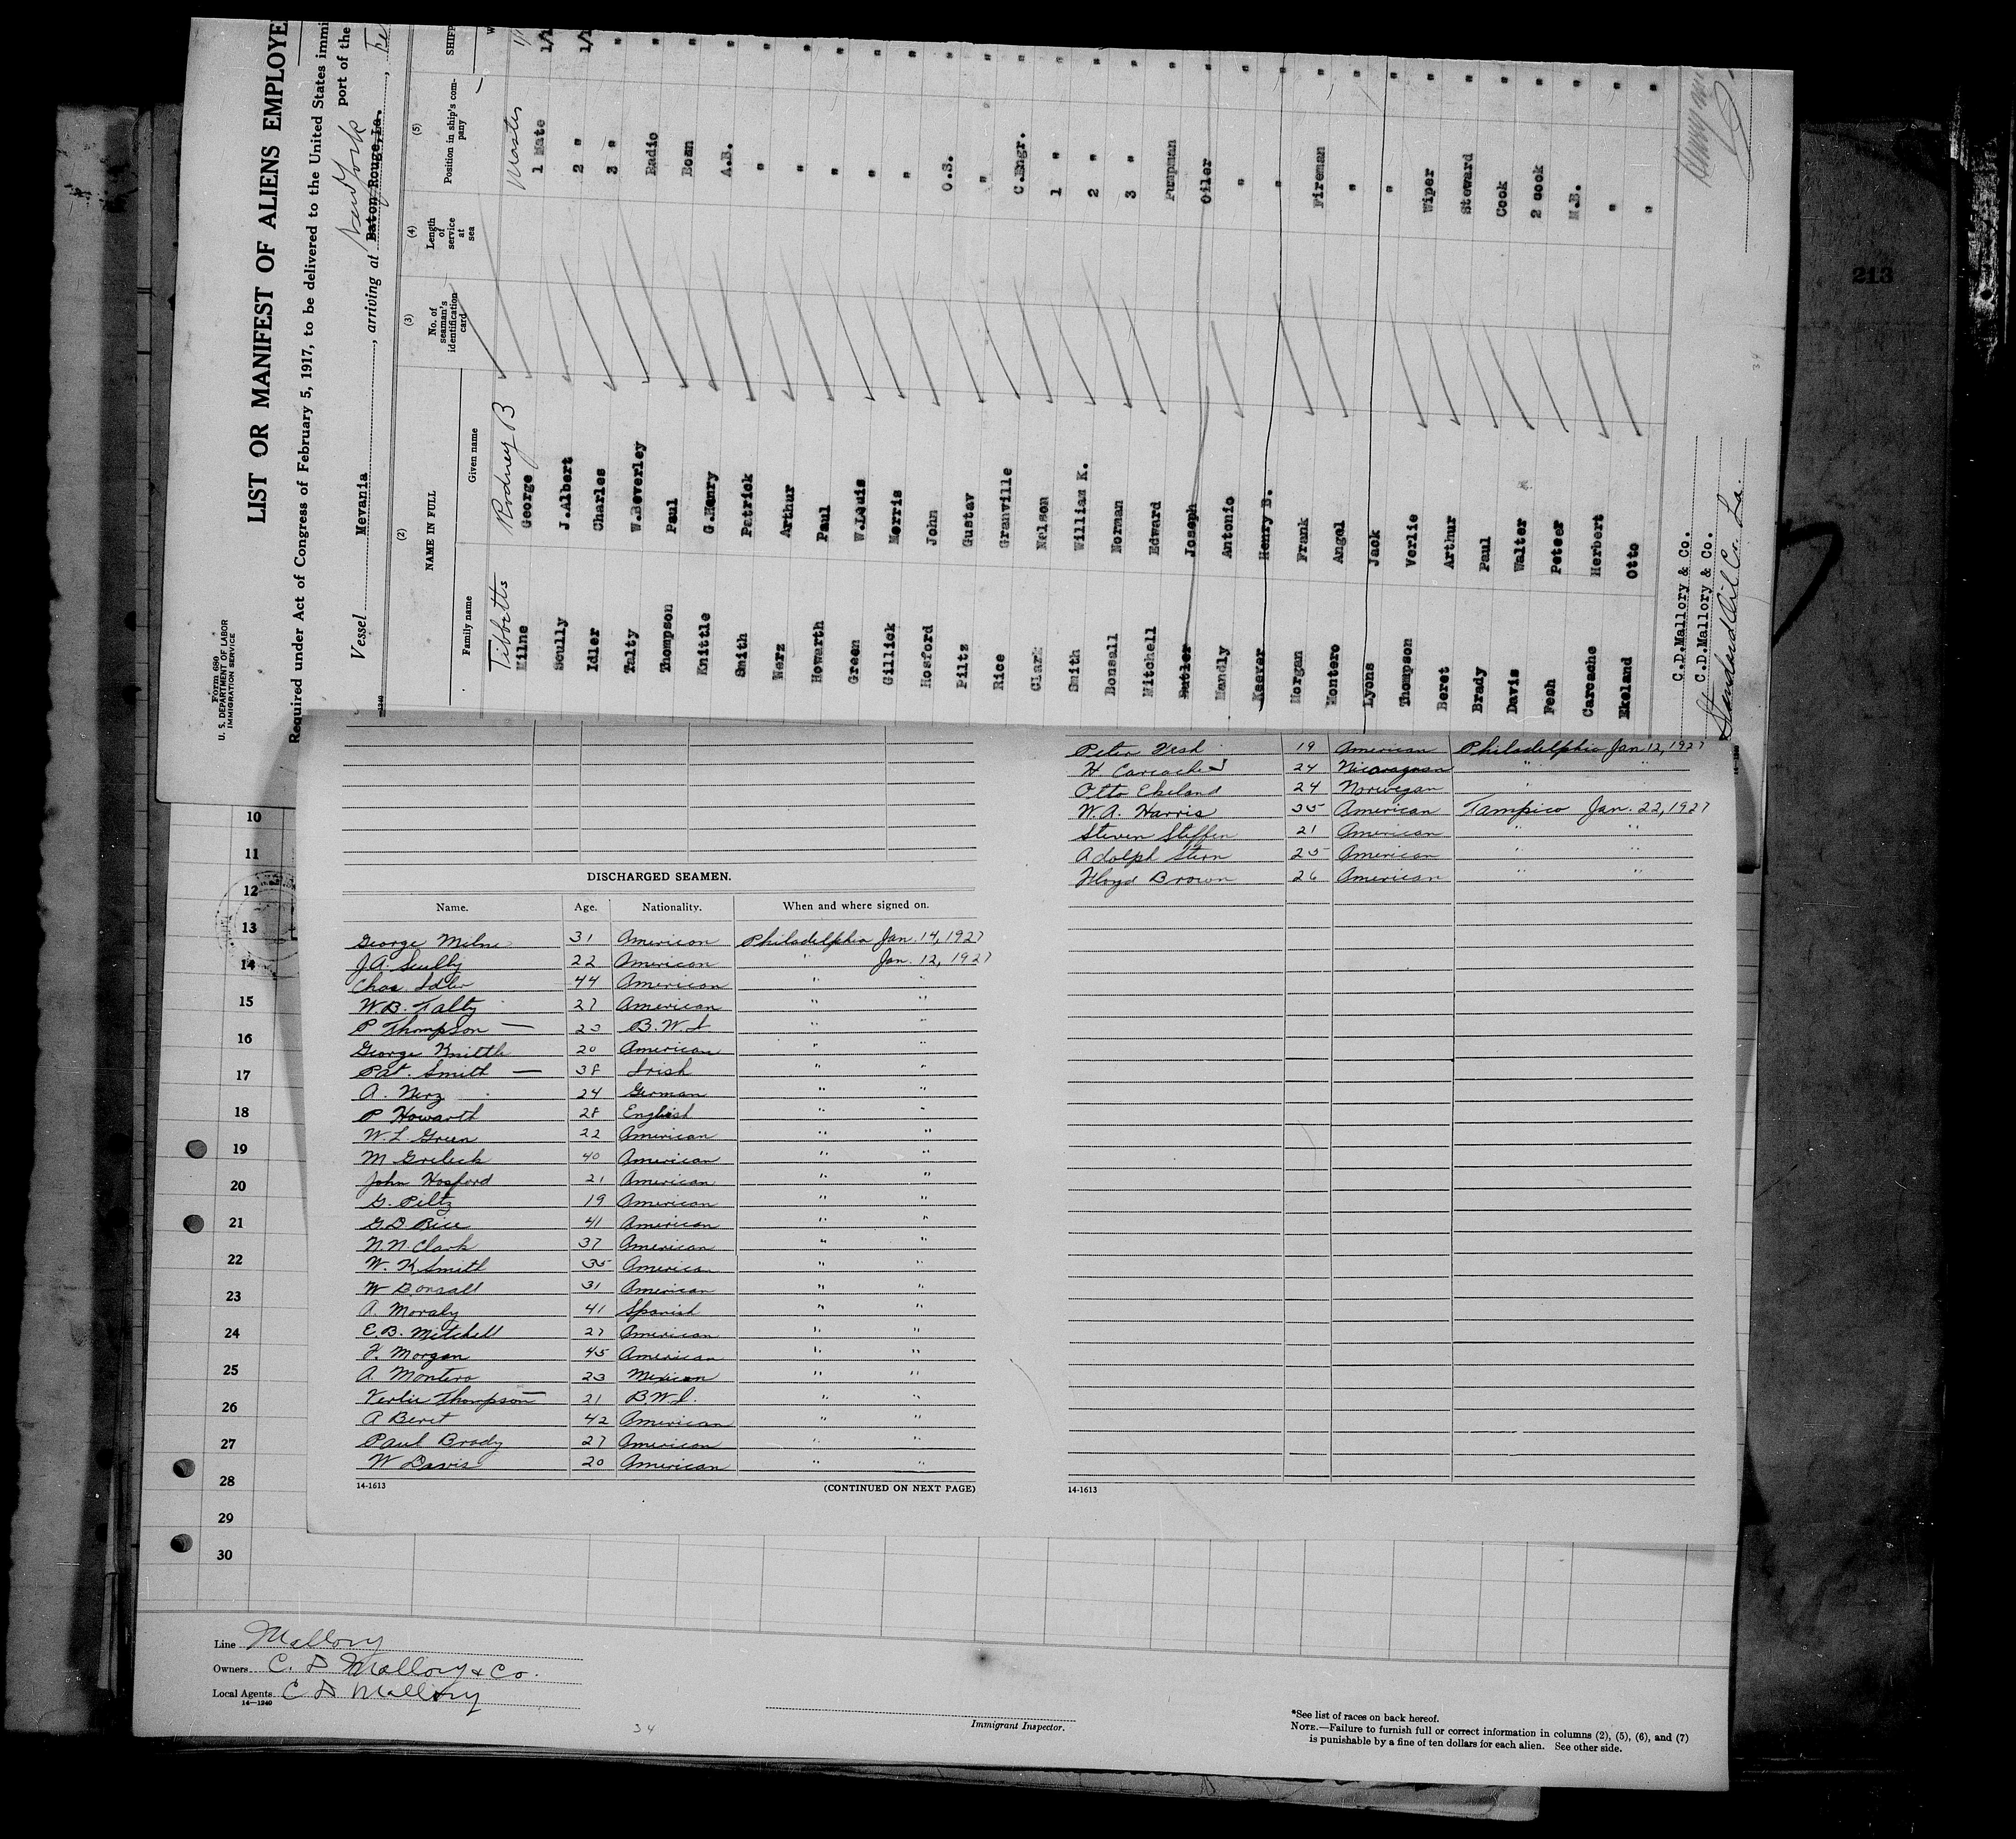 Form 680
U. S. DEPARTMENT OF LABOR
IMMIGRATION SERVICE
LIST OR MANIFEST OF ALIENS EMPLOYE
Required under Act of Congress of February 5, 1917, to be delivered to the United States immi
Vessel Mevania, arriving at Baton Rouge, La. New York port of the
(2) (3) (4) (5)
NAME IN FULL
Family name Given name
No. of seaman's identification card
Length of service at sea
Position in ship's company
SHIPP
Tibbetts Rodney B Master
Milne George 1 Mate
Scully J.Albert 2 "
Idler Charles 3 "
Talty W.Beverley Radio
Thompson Paul Bosn
Knittle G.Henry A.B.
Smith Patrick "
Nerz Arthur "
Howarth Paul "
Green W.Louis "
Gillick Morris "
Hosford John O.S.
Piltz Gustav "
Rice Granville C.Engr.
Clark Nelson 1 "
Smith William K. 2 "
Bonsall Norman 3 "
Mitchell Edward Pumpman
Butler Joseph Oiler
Mandly Antonio "
Keeter Henry B. "
Morgan Frank Fireman
Montero Angel "
Lyons Jack "
Thompson Verlie Wiper
Beret Arthur Steward
Brady Paul Cook
Davis Walter 2 Cook
Fesh Peteer M.B.
Carcache Herbert "
Ekeland Otto "
C.D.Mallory & Co.
C.D.Mallory & Co.
Standard Oil Co. La.
34
213
10
11
12
13
14
15
16
17
18
19
20
21
22
23
24
25
26
27
28
29
30
DISCHARGED SEAMEN.
Name. Age. Nationality. When and where signed on.
George Milne 31 American Philadelphia Jan. 14, 1927
J.A. Scully 22 American " Jan. 12, 1927
Chas. Idler 44 American " "
W.B. Talty 27 American " "
P Thompson — 23 B.W.I " "
George Knittle 20 American " "
Pat. Smith — 38 Irish " "
A. Nerz 24 German " "
P Howarth 28 English " "
W.L. Green 22 American " "
M Grelick 40 American " "
John Hosford 21 American " "
G. Piltz 19 American " "
G.D Rice 41 American " "
N.N. Clark 37 American " "
W. K. Smith 35 America " "
W Bonsall 31 American " "
A. Moraly 41 Spanish " "
E.B. Mitchell 27 American " "
F. Morgan 45 American " "
A. Montero 23 Mexican " "
Verlie Thompson — 21 B.W.I. " "
A Beret 42 American " "
Paul Brady 27 American " "
W Davis 20 American " "
14-1613 (CONTINUED ON NEXT PAGE)
Peter Fesh 19 American Philadelphia Jan 12, 1927
H Carcache 24 Nicaraguan " "
Otto Ekeland 24 Norwegan " "
W.A. Harris 35 American Tampico Jan. 22, 1927
Steven Steffen 21 American " "
Adolph Stern 25 American " "
Floyd Brown 26 American " "
14-1613
Line Mallory
Owners C. D Mallory & Co.
Local Agents C D Mallory
14—1240
34
Immigrant Inspector.
*See list of races on back hereof.
NOTE.—Failure to furnish full or correct information in columns (2), (5), (6), and (7)
is punishable by a fine of ten dollars for each alien. See other side.